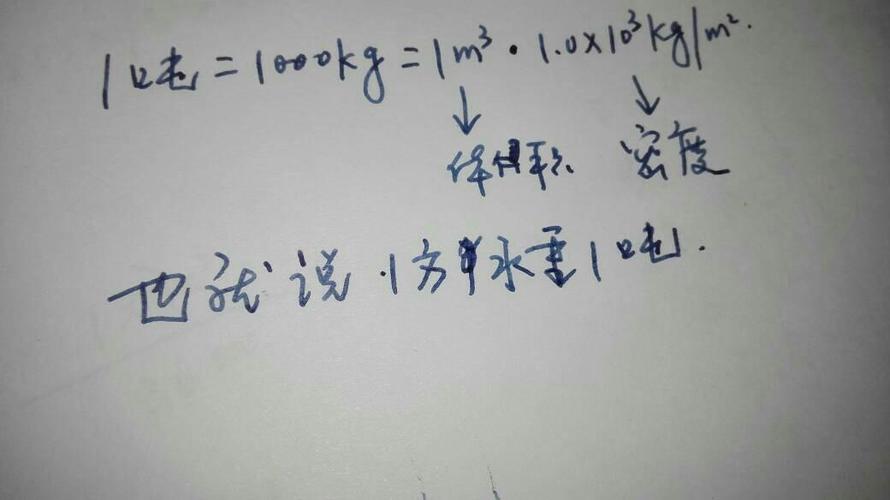 1吨=1000kg=1m³·1.0×10³kg/m².
↓ ↓
体积 密度
也就说.1方水重1吨.